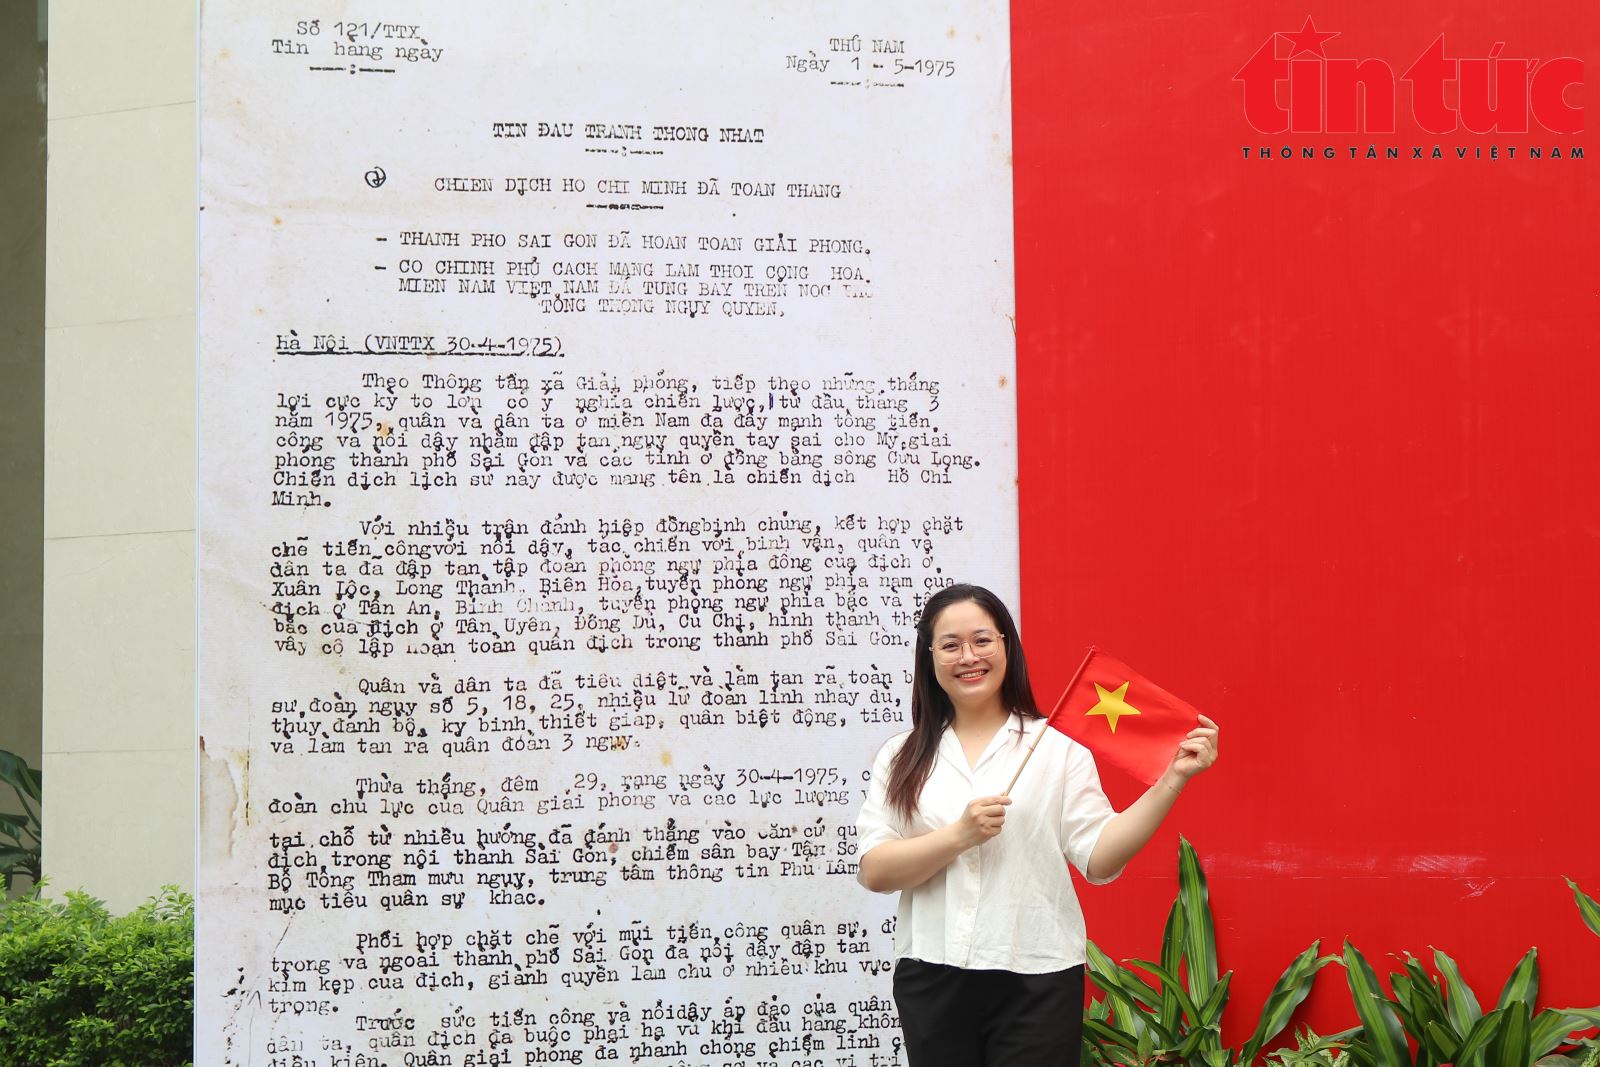 Số 121/TTX
Tin hàng ngày
THỨ NAM
Ngày 1 - 5-1975
tin tức
THÔNG TẤN XÃ VIỆT NAM
TIN ĐAU TRANH THONG NHAT
CHIEN DỊCH HO CHI MINH ĐÃ TOAN THANG
- THANH PHO SAI GON ĐÃ HOAN TOAN GIẢI PHONG.
- CO CHINH PHỦ CACH MẠNG LAM THOI CỘNG HOA
MIEN NAM VIỆT NAM ĐÃ TUNG BAY TRÊN NOC
TỔNG THỐNG NGỤY QUYEN.
Hà Nội (VNTTX 30-4-1975)
Theo Thông tấn xã Giải phóng, tiếp theo những thắng
lợi cực kỳ to lớn có ý nghĩa chiến lược, từ đầu tháng 3
năm 1975, quân và dân ta ở miền Nam đã đẩy mạnh tổng tiến
công và nổi dậy nhằm đập tan ngụy quyền tay sai cho Mỹ, giải
phóng thành phố Sài Gòn và các tỉnh ở đồng bằng sông Cửu Long.
Chiến dịch lịch sử này được mang tên là chiến dịch Hồ Chí
Minh.
Với nhiều trận đánh hiệp đồng binh chủng, kết hợp chặt
chẽ tiến công với nổi dậy, tác chiến với binh vận, quân và
dân ta đã đập tan tập đoàn phòng ngự phía đông của địch ở
Xuân Lộc, Long Thành, Biên Hòa, tuyến phòng ngự phía nam của
địch ở Tân An, Bình Chánh, tuyến phòng ngự phía bắc và
bắc của địch ở Tân Uyên, Đồng Dù, Củ Chi, hình thành
vây cô lập hoàn toàn quân địch trong thành phố Sài Gòn.
Quân và dân ta đã tiêu diệt và làm tan rã toàn
sư đoàn ngụy số 5, 18, 25, nhiều lữ đoàn lính nhảy dù,
thủy đánh bộ, kỵ binh thiết giáp, quân biệt động, tiêu
và làm tan rã quân đoàn 3 ngụy.
Thừa thắng, đêm 29, rạng ngày 30-4-1975,
đoàn chủ lực của Quân giải phóng và các lực lượng
tại chỗ từ nhiều hướng đã đánh thẳng vào căn cứ
địch trong nội thành Sài Gòn, chiếm sân bay Tân
Bộ Tổng Tham mưu ngụy, trung tâm thông tin Phú Lâm
mục tiêu quân sự khác.
Phối hợp chặt chẽ với mũi tiến công quân sự,
trong và ngoài thành phố Sài Gòn đã nổi dậy đập tan
kìm kẹp của địch, giành quyền làm chủ ở nhiều khu vực
trọng.
Trước sức tiến công và nổi dậy áp đảo của quân
dân ta, quân địch đã buộc phải hạ vũ khí đầu hàng không
điều kiện. Quân giải phóng đã nhanh chóng chiếm lĩnh
sở và các vị trí